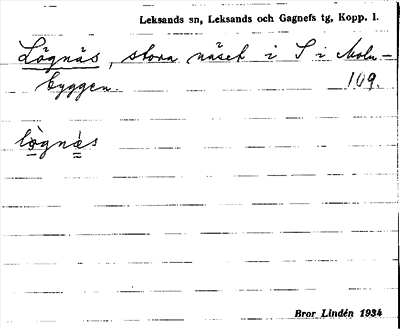 Leksands sn, Leksands och Gagnefs tg, Kopp. l.
Lögnäs, stora näset i S i Moln-
byggen. 109.
lògnä̀s
Bror Lindén 1934